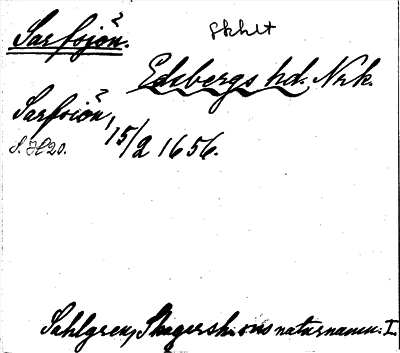 Sarfsjön.
Skhlt
Edsbergs hd. Nrk.
Sarfsiön, 15/2 1656.
S. H 20.
Sahlgren, Skagersh.ons naturnamn. I.